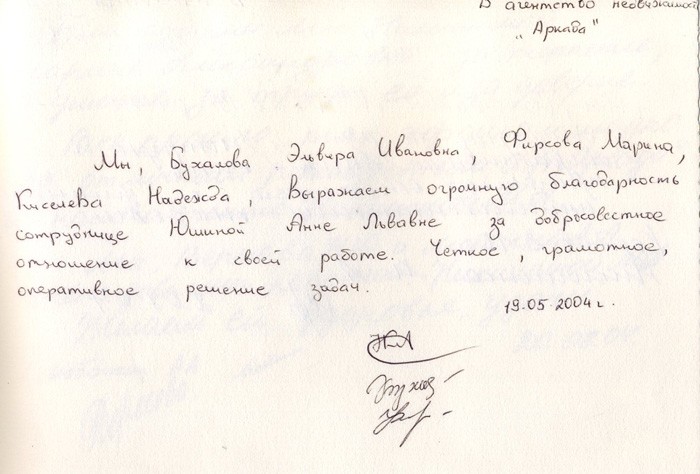 В агентство недвижимости
"Аркада"
Мы, Бухалова Эльвира Ивановна, Фирсова Марина,
Киселева Надежда, выражаем огромную благодарность
сотруднице Юшиной Анне Львавне за добросовестное
отношение к своей работе. Четкое, грамотное,
оперативное решение задач.
19.05.2004 г.